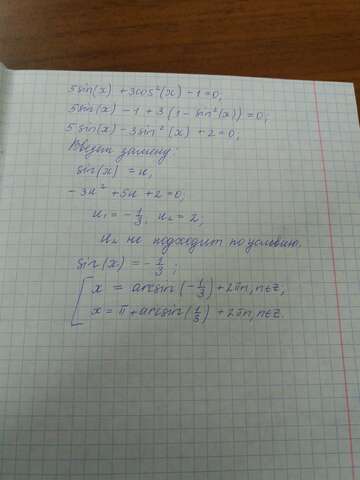 5sin(x) + 3cos²(x) - 1 = 0;
5sin(x) - 1 + 3(1 - sin²(x)) = 0;
5sin(x) - 3sin²(x) + 2 = 0;
Введем замену:
sin(x) = u,
- 3u² + 5u + 2 = 0;
u₁ = - 1/3, u₂ = 2;
u₂ не подходит по условию.
sin(x) = - 1/3;
x = arcsin(- 1/3) + 2πn, n∈Z,
x = π + arcsin(1/3) + 2πn, n∈Z.